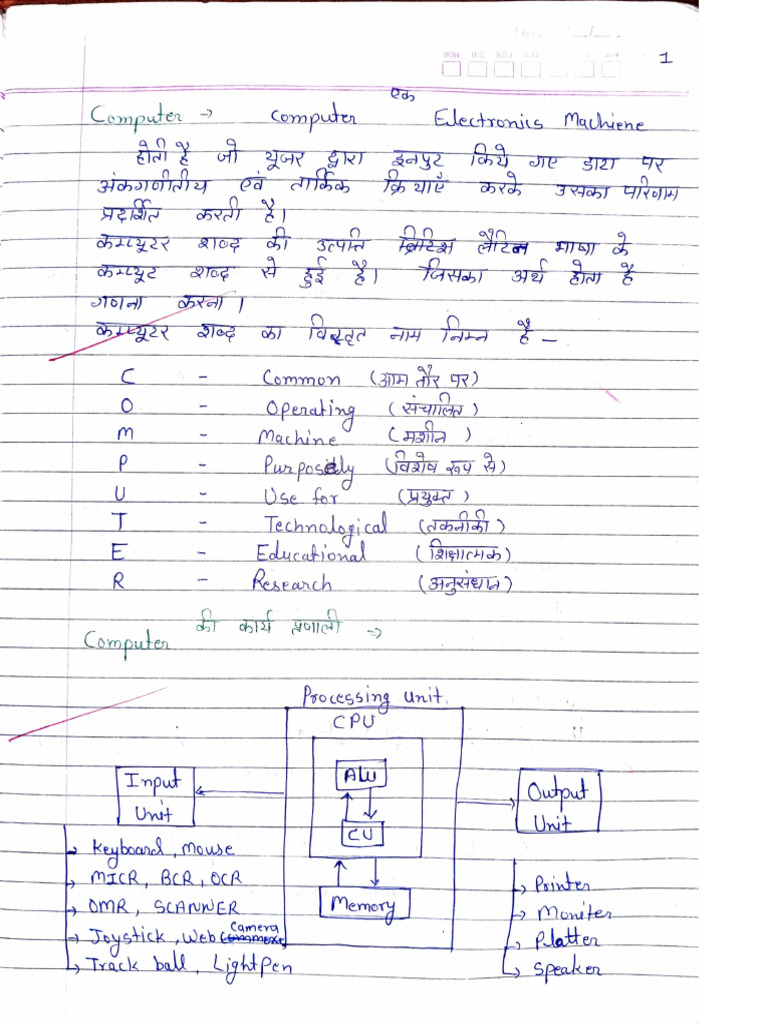 1
Computer → Computer एक Electronics Machiene
होती है जो यूजर द्वारा इनपुट किये गए डाटा पर
अंकगणीतीय एवं तार्किक क्रियाएँ करके उसका परिणाम
प्रदर्शित करती है।
कम्प्यूटर शब्द की उत्पति लैटिन भाषा के
कम्प्यूट शब्द से हुई है। जिसका अर्थ होता है
गणना करना।
कम्प्यूटर शब्द का विस्तृत नाम निम्न है –
C - Common (आम तौर पर)
O - Operating (संचालित)
M - Machine (मशीन)
P - Purposely (विशेष रूप से)
U - Use for (प्रयुक्त)
T - Technological (तकनीकी)
E - Educational (शिक्षात्मक)
R - Research (अनुसंधान)
Computer की कार्य प्रणाली →
Processing Unit.
CPU
ALU
Input Unit
Output Unit
CU
Memory
→ Keyboard, Mouse
→ MICR, BCR, OCR
→ OMR, SCANNER
→ Joystick, Web Camera
→ Track ball, LightPen
→ Printer
→ Moniter
→ Platter
→ Speaker